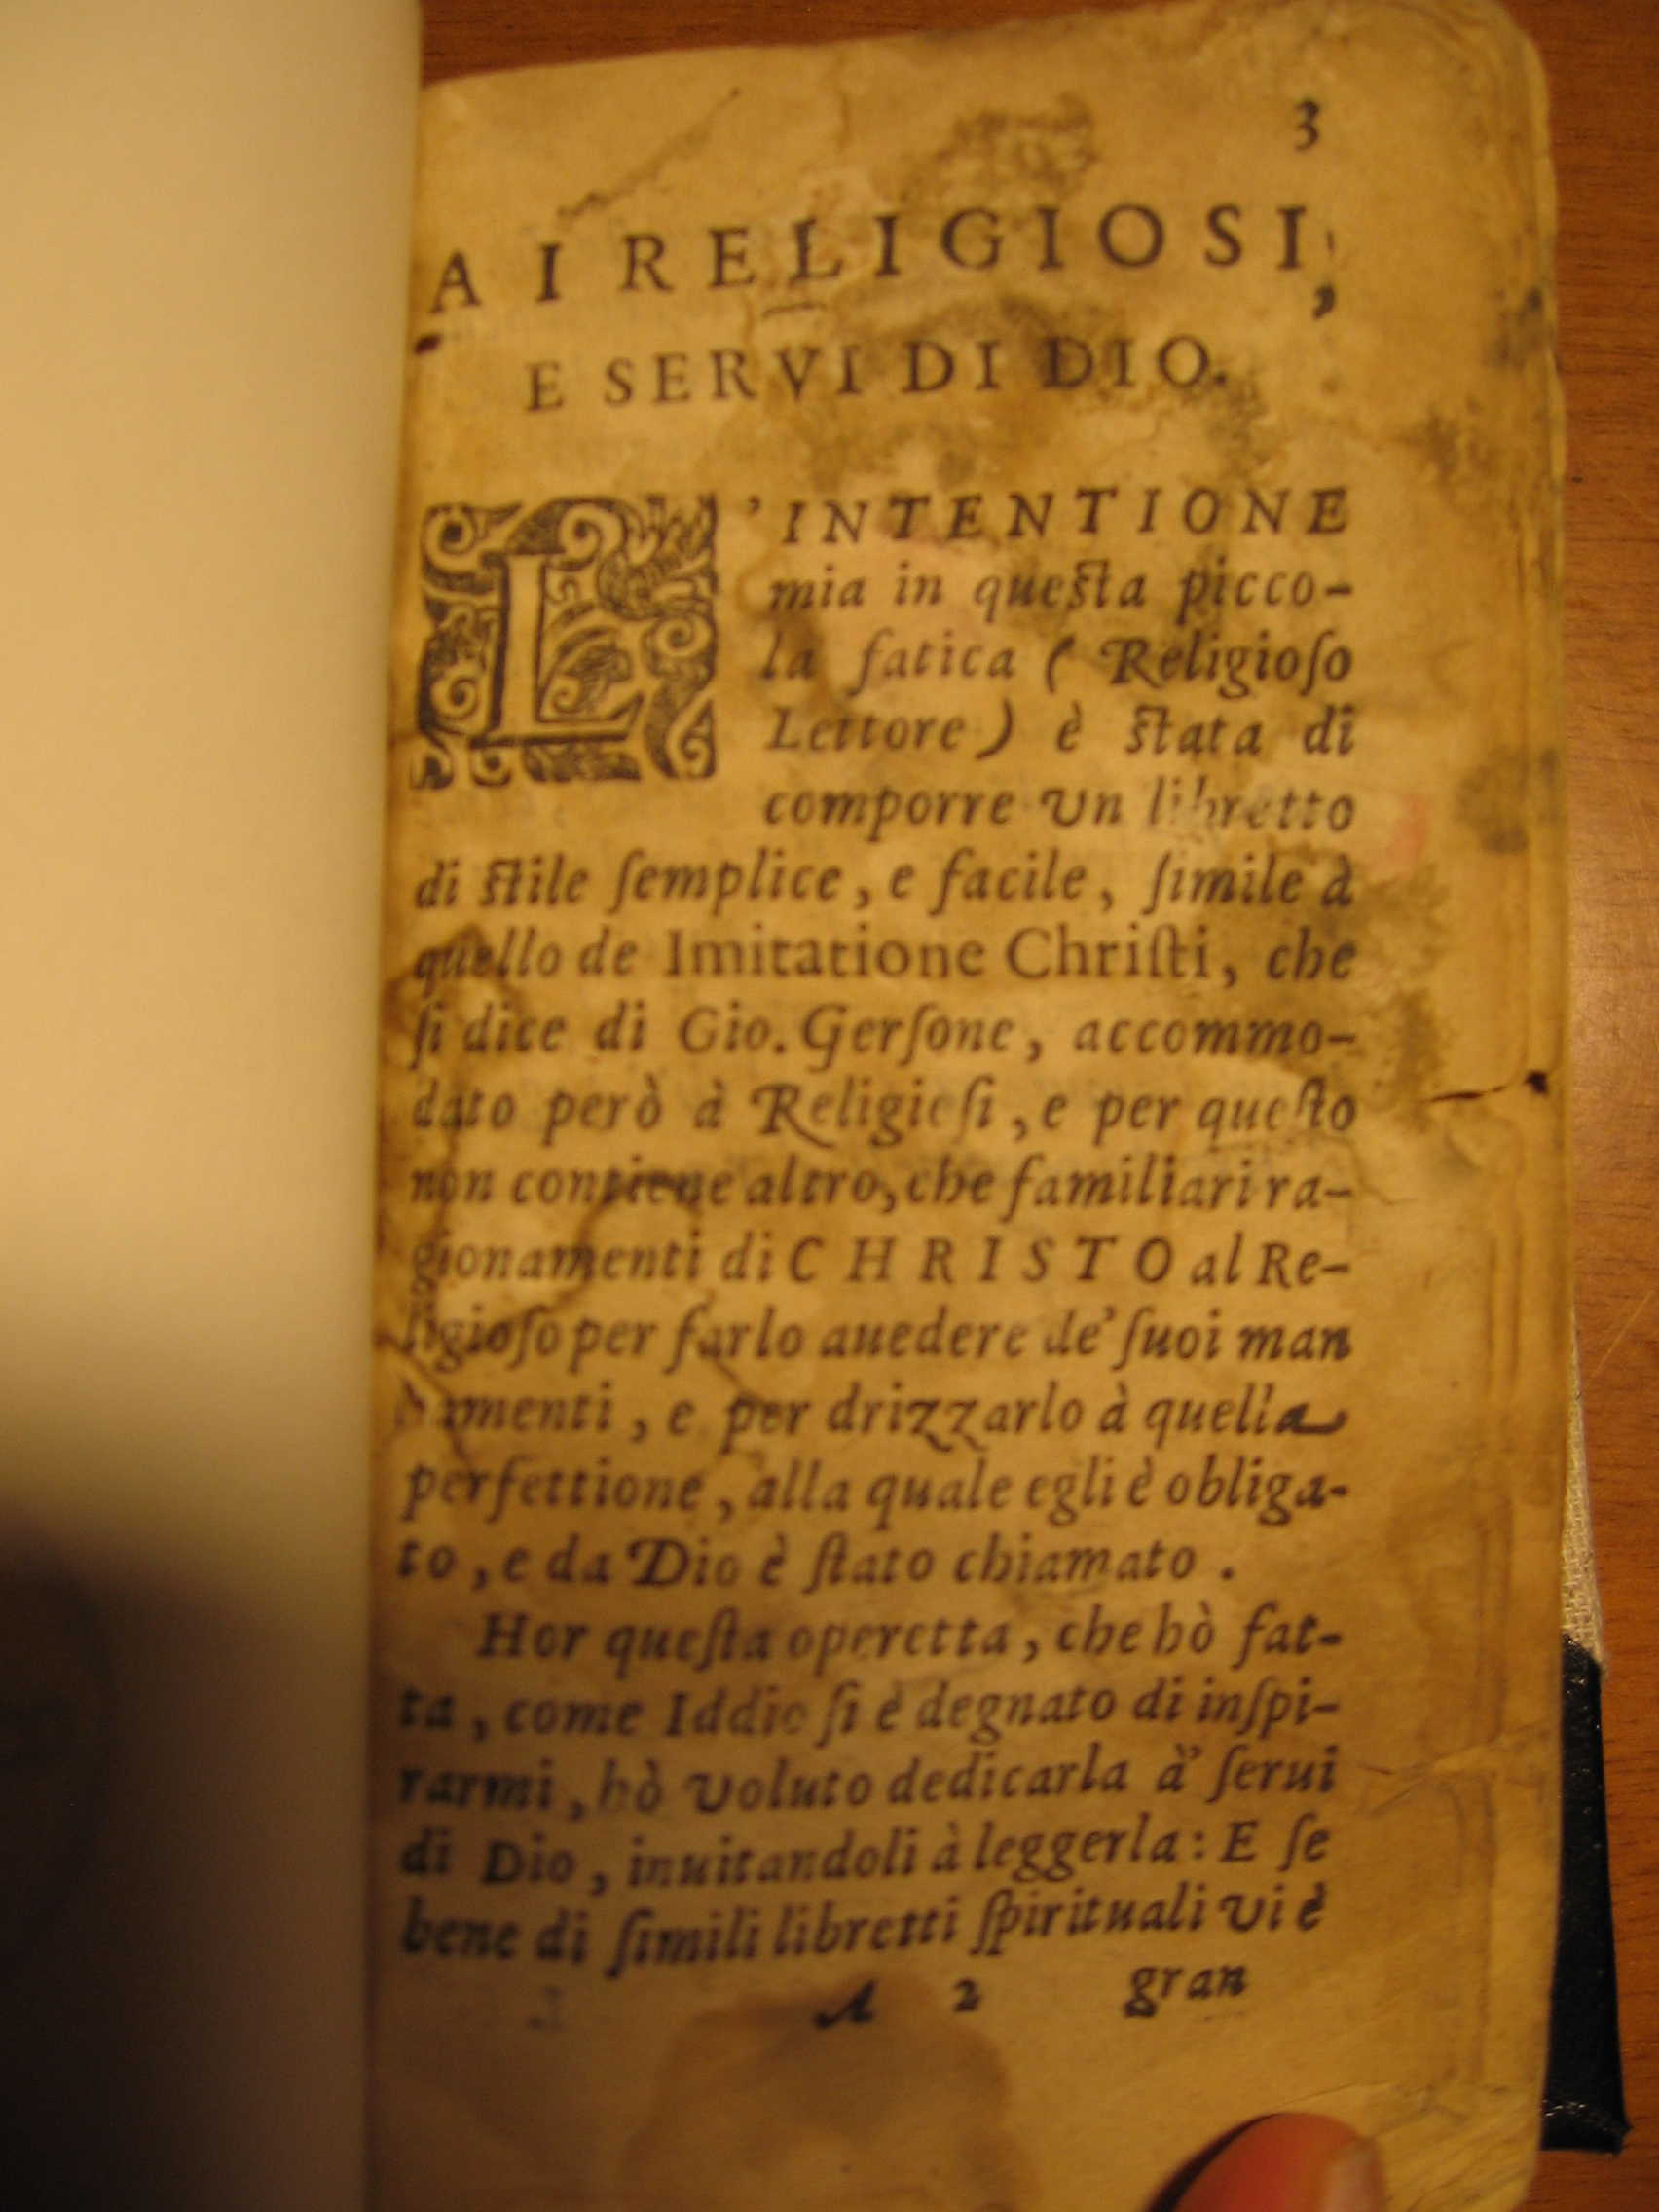 3
A I RELIGIOSI,
E SERVI DI DIO.
L'INTENTIONE
mia in queſta picco-
la fatica ( Religioſo
Lettore ) è ſtata di
comporre vn libretto
di ſtile ſemplice, e facile, ſimile à
quello de Imitatione Chriſti, che
ſi dice di Gio. Gerſone, accommo-
dato però à Religioſi, e per queſto
non contiene altro, che familiari ra-
gionamenti di CHRISTO al Re-
ligioſo per farlo auedere de' ſuoi man
camenti, e per drizzarlo à quella
perfettione, alla quale egli è obliga-
to, e da Dio è ſtato chiamato.
Hor queſta operetta, che hò fat-
ta, come Iddio ſi è degnato di inſpi-
rarmi, hò voluto dedicarla à' ſerui
di Dio, inuitandoli à leggerla: E ſe
bene di ſimili libretti ſpirituali vi è
A 2 gran